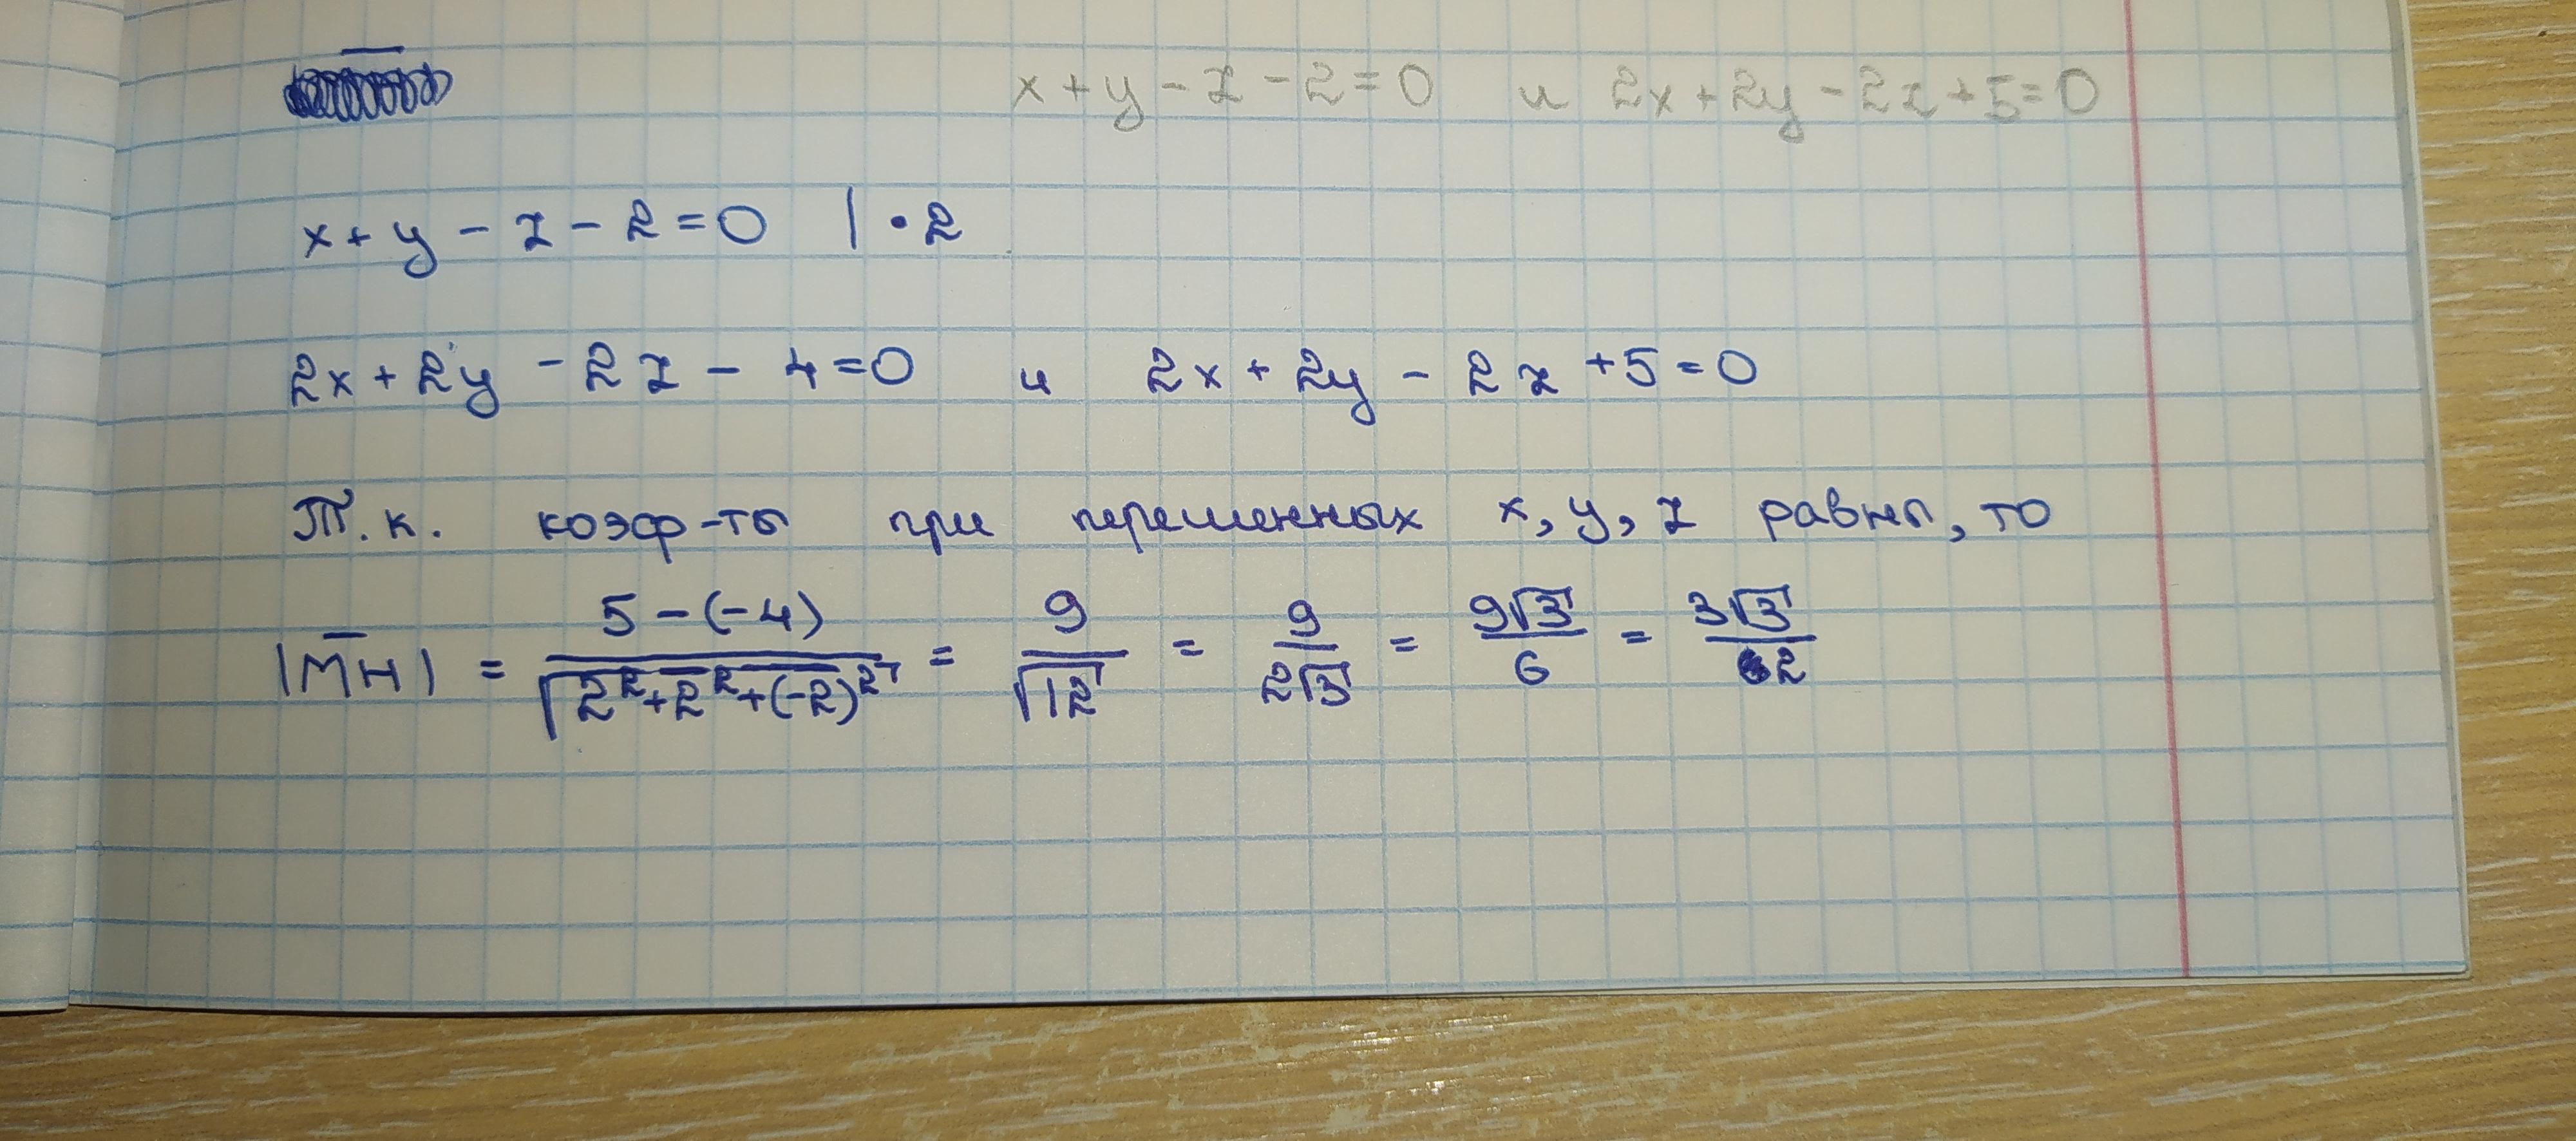 x + y - z - 2 = 0 и 2x + 2y - 2z + 5 = 0
x + y - z - 2 = 0 | • 2
2x + 2y - 2z - 4 = 0 и 2x + 2y - 2z + 5 = 0
Т.к. коэф-ты при переменных x, y, z равны, то
|M̅H̅| = (5 - (-4))/√(2² + 2² + (-2)²) = 9/√12 = 9/(2√3) = 9√3/6 = 3√3/2